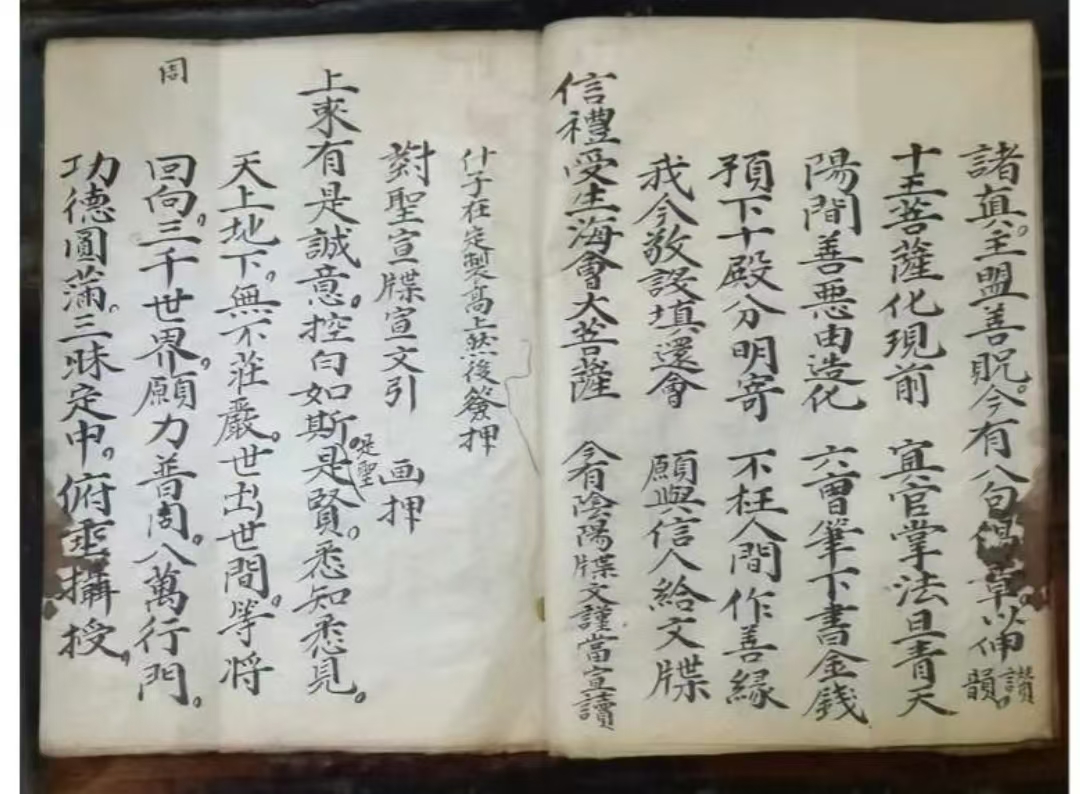 諸真主盟善貺。今有八句偈章。以俑讚韻。
十王菩薩化現前 冥官掌法旦青天
陽間善惡由造化 六曹筆下書金錢
預下十殿分明寄 不枉人間作善緣
我今敬設填還會 願與信人給文牒
信禮受生海會大菩薩 今有陰陽牒文謹當宣讀
什子在定製高上然後簽押
對聖宣牒宣文引 画押
上來有是誠意。控白如斯。是聖是賢。悉知悉見。
天上地下。無不莊嚴。世出世間。等將
周
回向。三千世界。願力普周。八萬行門。
功德圓蒲。三昧定中。俯垂攝授。